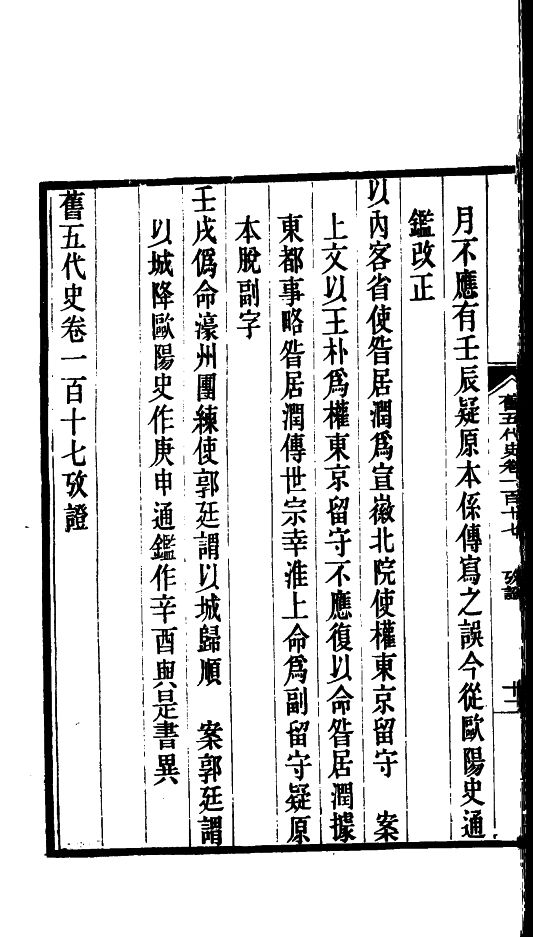 月不應有壬辰疑原本係傳寫之誤今從歐陽史通
鑑改正
以內客省使昝居潤爲宣徽北院使權東京留守　案
上文以王朴爲權東京留守不應復以命昝居潤據
東都事略昝居潤傳世宗幸淮上命爲副留守疑原
本脫副字
壬戌僞命濠州團練使郭廷謂以城歸順　案郭廷謂
以城降歐陽史作庚申通鑑作辛酉與是書異
舊五代史卷一百十七攷證
舊五代史卷一百十七　攷證　十二